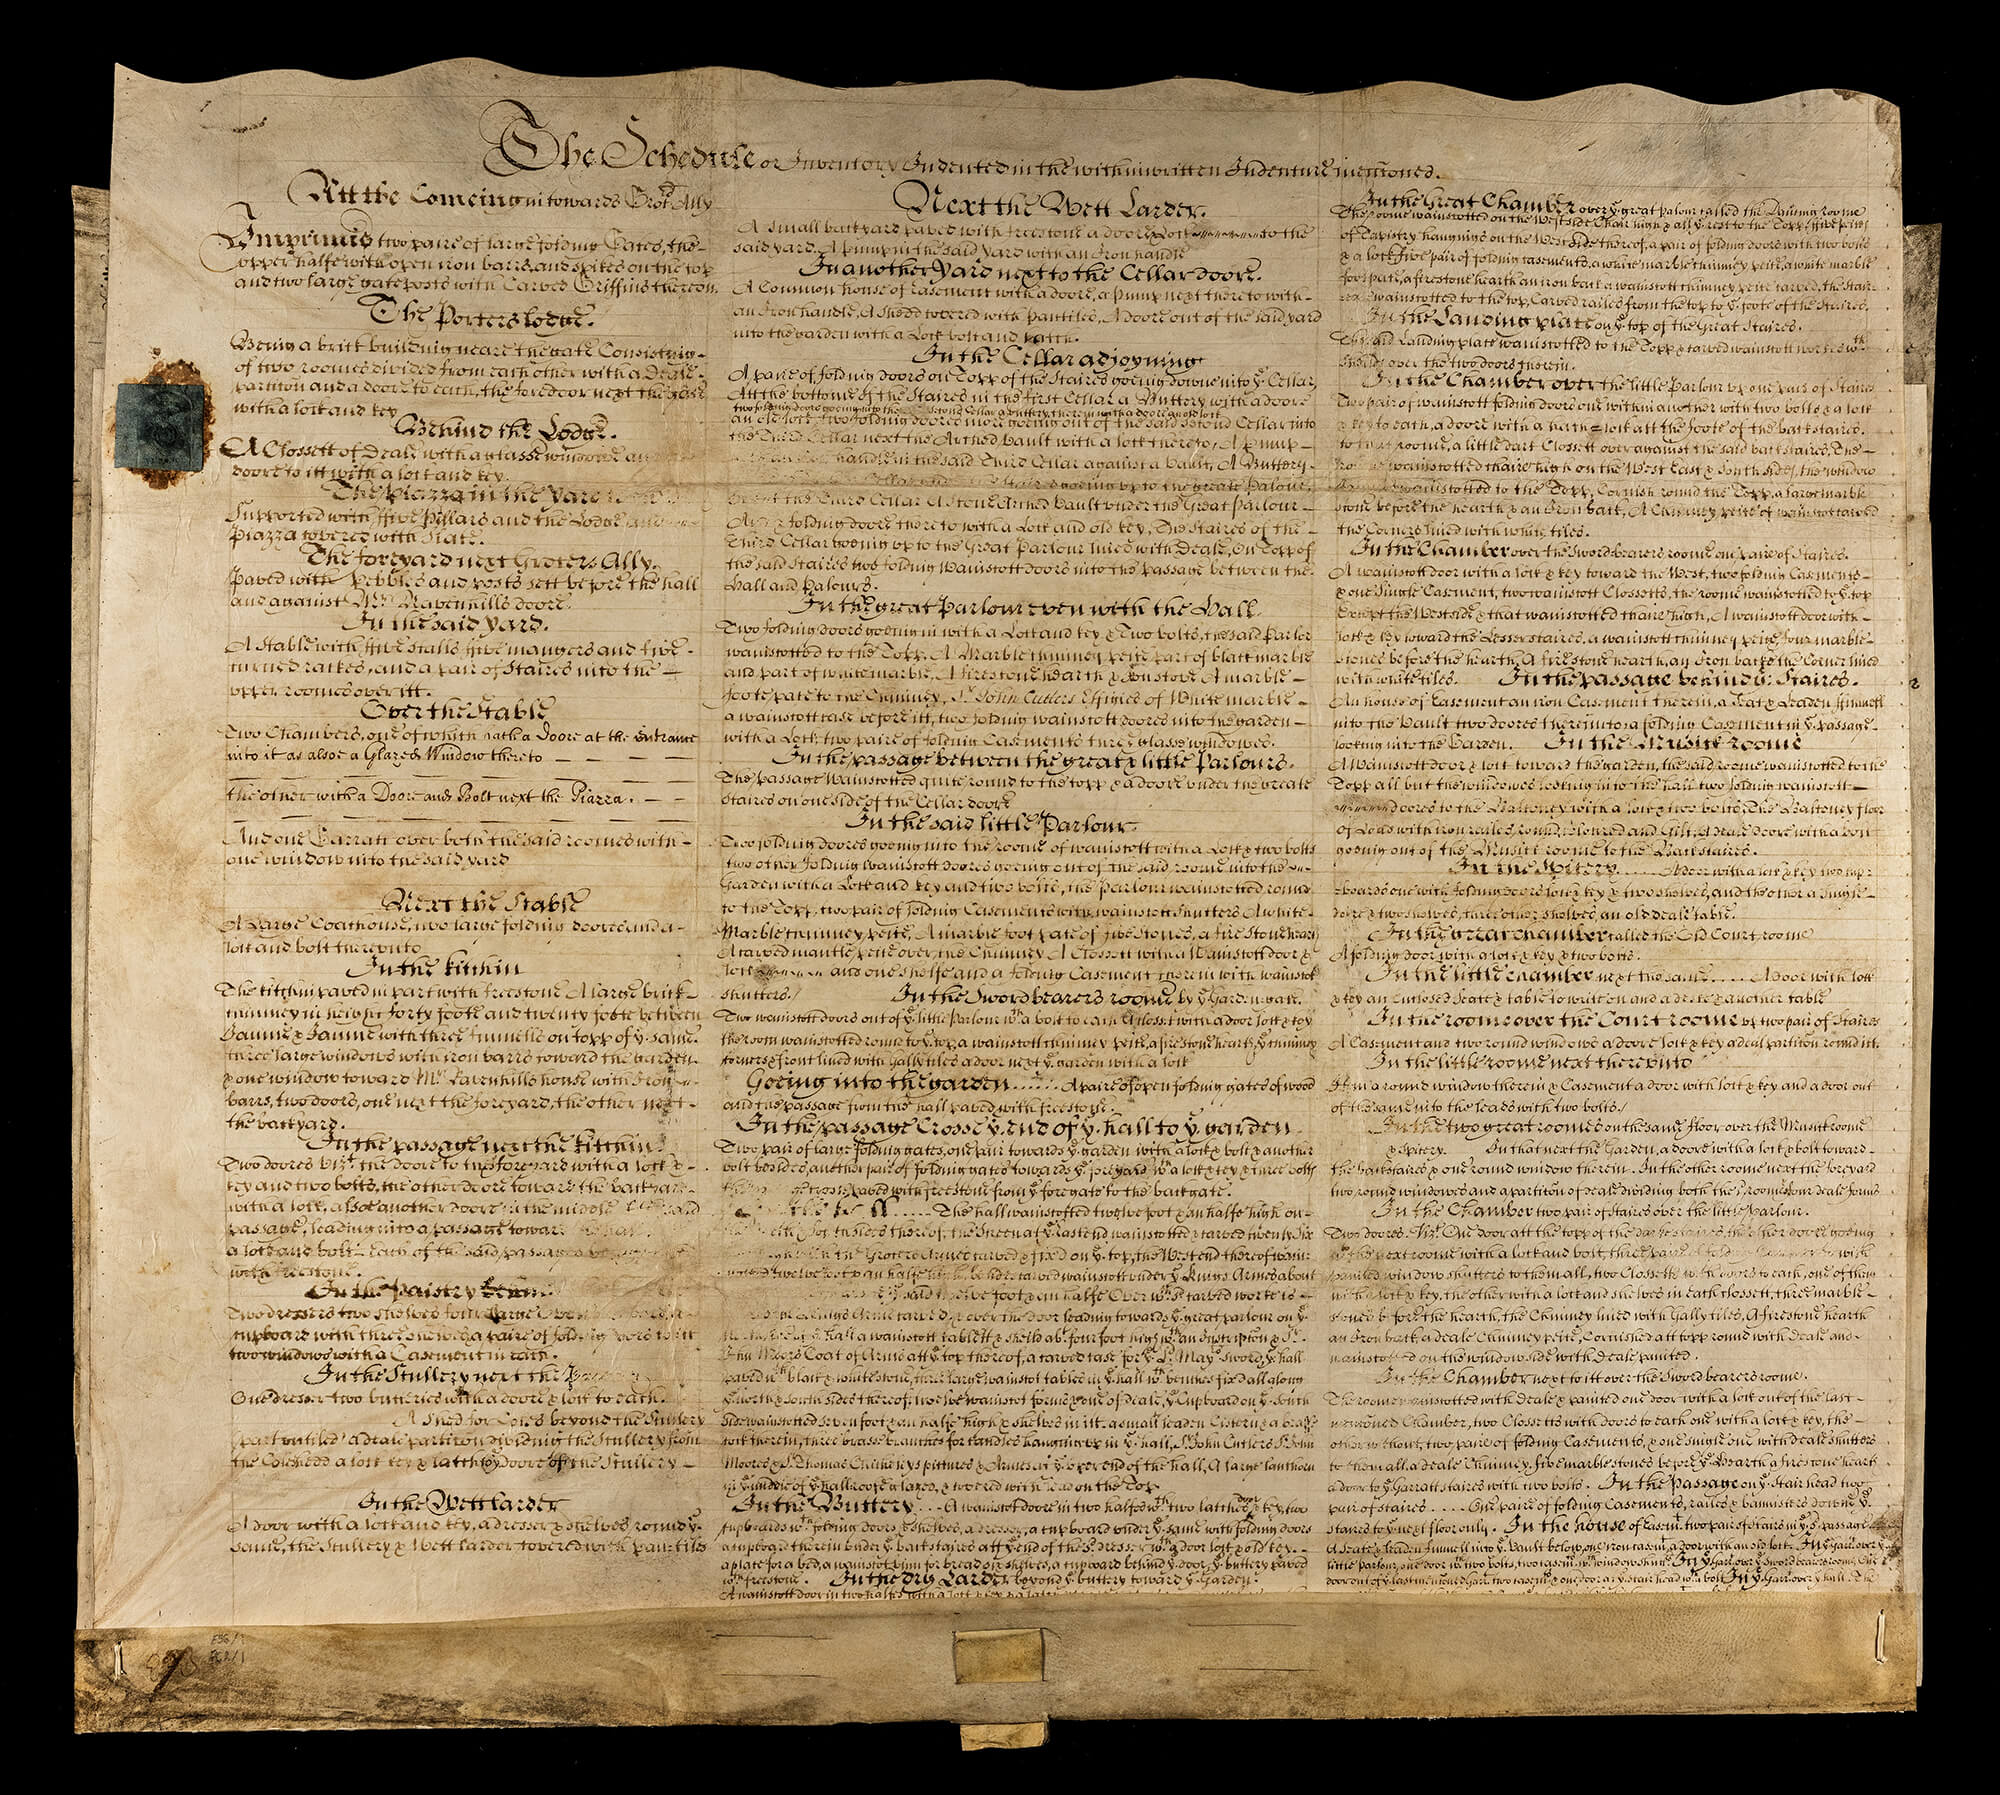 The Schedule or Inventory Indented in the within written Indenture menc̃oned.
Att the Comeing in towards Groc.rs Ally
Imprimis two paire of large folding Gates, the
opper halfe with open iron barrs and spikes on the top
and two large gate posts with Carved Griffins thereon.
The Porters lodge.
Being a brick building neare the gate Consisting
of two roomes divided from each other with a Deale
partition and a doore to each, the foredoor next the
with a lock and key
Behind the Lodge.
A Clossett of Deale with a glasse windowe an
doore to itt with a lock and key.
The Piazza in the yard
Supported with ffive Pillars and the Lodge and
Piazza covered with Slate.
The foreyard next Grocers Ally.
Paved with Pebbles and posts sett before the hall
and against Mr. Ravenhills doore.
In the said yard.
A Stable with ffive stalls five mangers and five
turned rackes, and a pair of Staires into the
upper roomes over itt.
Over the Stable
Two Chambers, one of which hath a Doore at the entrance
into it as alsoe a Glazed Window thereto
the other with a Doore and Bolt next the Piazza.
And one Garratt over both the said roomes with
one window into the said yard
Next the Stable
A Large Coachouse, two large folding doores and a
lock and bolt thereunto
In the kitchin
The kitchin paved in part with freestone A large brick
chimney in height forty foote and twenty foote between
Jamme & Jamme with three funnells on topp of y.e same
three large windows with iron barrs toward the Garden
& one window toward Mr. Ravenhills house with Iron
barrs, two doors, one next the foreyard, the other next
the backyard.
In the passage next the kitchin
Two doores viz.t the doore to the foreyard with a lock &
key and two bolts, the other doore toward the backyard
with a lock, alsoe another doore in the middle of the said
passage, leading into a passage toward the hall
a lock and bolt each of the said passages
with freestone.
In the Paistry
Two dressers two shelves four large
cupboard with three shelves a paire of folding doors to itt
two windows with a Casement in each.
In the Scullery next the
One dresser two butteries with a doore & lock to each.
A shed for Coles beyond the Scullery
part untiled a deale partition dividing the Scullery from
the Coleshedd a lock key & latch to y.e Doore of the Scullery
In the Wett larder
A door with a lock and key, a dresser & shelves round y.e
same, the Scullery & Wett larder covered with pantiles
Next the Wett Larder.
A small backyard paved with freestone a doore & lock to the
said yard. A pump in the said yard with an Iron handle
In another Yard next to the Cellar doore.
A Common house of Easement with a doore, a pump next there to with
an Iron handle, A shedd covered with pantiles, A doore out of the said yard
into the garden with a Lock bolt and latch.
In the Cellar adjoyning
A paire of folding doors on Topp of the Staires going downe into y.e Cellar,
Att the bottome of the Staires in the first Cellar a Buttery with a doore
two folding doors going into the second Cellar a buttery therein with a doore and old lock
an old lock, two folding doores more going out of the said second Cellar into
the Third Cellar next the Arched Vault with a lock thereto, A pump
handle in the said Third Cellar against a Vault, A Buttery
going up to the great Palour,
next the Third Cellar A stone Arched Vault under the Great Parlour
And 2 folding doors there to with a Lock and old key, The Staires of the
Third Cellar going up to the Great Parlour lined with Deale, On Topp of
the said Staires two folding Wainscott doors into the passage between the
Hall and Palours.
In the great Parlour even with the Hall
Two folding doors going in with a Lock and key & Two bolts, the said Parlor
wainscotted to the Topp. A Marble chimney peice part of black marble
and part of white marble, A firestone hearth & Ironstove A marble
foote pace to the Chimney, S.r John Cutlers Effigies of White marble
a wainscott case before itt, two folding wainscott doores into the garden
with a Lock two paire of folding Casements three glasse windowes.
In the passage between the great & little Parlours.
The passage Wainscotted quite round to the topp & a doore under the greate
Staires on one side of the Cellar doore
In the said little Parlour
Two folding doores going into the roome of wainscott with a Lock & two bolts
two other folding wainscott doores going out of the said roome into the
Garden with a Lock and key and two bolts, the Parlour wainscotted round
to the Topp, two pair of folding Casements with wainscott shutters A white
Marble chimney peice, A marble foot pace of five Stones, a fire Stone hearth
A carved mantle peice over the Chimney A Clossett with a Wainscott door &
lock and one shelfe and a folding Casement therein with wainscott
shutters./ In the Swordbearers roome by y.e Garden gate.
Two wainscott doors out of y.e little Parlour w.th a bolt to each A closset with a door lock & key
the room wainscotted round to y.e top a wainscott chimney peice, a firestone hearth, y.e chimney
corners & front lined with Gally tiles a door next y.e garden with a lock
Goeing into the garden ...... A paire of open folding gates of wood
and the passage from the hall paved with freestone.
In the passage Crosse y.e end of y.e hall to y.e garden
Two pair of large folding gates, one pair towards y.e garden with a lock & bolt & another
bolt besides, another pair of folding gates towards y.e foreyard w.th a lock & key & three bolts
paved with freestone from y.e fore gate to the backgate.
The hall wainscotted twelve foot & an halfe high on
both sides thereof, the Screen att y.e East end wainscotted & carved twenty six
the Grocers Armes carved & fixed on y.e top, the West end thereof wain:
scotted twelve foot & an halfe high, besides carved wainscott under y.e Kings Armes about
said twelve foot & an halfe Over w.ch carved worke is
Kings Arms carved, & over the door leading towards y.e great parlour on y.e
hall a wainscott tablett & sheild ab.t four foot high w.th an Inscription & S.r
John Moors Coat of Arms att y.e top thereof, a carved case for y.e L.d May.rs sword, y.e hall
paved w.th black & white stone, three large wainscot tables in y.e hall w.th benches fixed all along
North & South sides thereof, twelve wainscot forms & one of deale, y.e Cupboard on y.e South
side wainscotted seven foot & an halfe high & shelves in itt, a small leaden Cistern & a brasse
cock therein, three brasse branches for candles hanging up in y.e hall, S.r John Cutlers S.r John
Moores & S.r Thomas Chicheleys pictures & Armes at y.e oper end of the hall, A large lanthorn
in y.e middle of y.e hall roofe glazed, & covered with lead on the Top
In the Buttery ... A wainscot doore in two halfes w.th two latches lock & key, two
cupboards w.th folding doors & shelves, a dresser, a cupboard under y.e same with folding doors
a cupboard therein under y.e backstaires att y.e end of the s.d dresser w.th a door lock & old key
a place for a bed, a wainscot binn for bread six shelves, a cupboard behind y.e door, y.e buttery paved
w.th freestone. In the dry Larder beyond y.e buttery toward y.e Garden.
A wainscott door in two halfes with a lock & key
In the Great Chamber over y.e great palour called the Dining roome
The roome wainscotted on the West side Chair high & all y.e rest to the Topp, five peices
of Tapistry hangings on the West side thereof, a pair of folding doors with two bolts
& a lock, five pair of folding casements, a white marble chimney peice, a white marble
foot pace, a firestone hearth an iron back a wainscott chimney peice carved, the Stair
case wainscotted to the top, Carved railes from the top to y.e foote of the Staires.
In the Landing place on y.e top of the Great Staires.
The said Landing place wainscotted to the Topp & carved wainscott worke w.th
sheilds over the two doors therein.
In the Chamber over the little Parlour up one pair of Staires
Two pair of wainscott folding doors one within another with two bolts & a lock
& key to each, a doore with a hatch & lock att the foote of the backstaires.
to that roome, a little dark Clossett over against the said backstaires, The
roome wainscotted chaire high on the West East & South sides, the window
wainscotted to the Topp, Cornish round the Topp, a large marble
stone before the hearth & an Iron back, A Chimney peice of wainscott and
the Corners lined with white tiles.
In the Chamber over the Swordbearers roome one paire of Staires.
A wainscott door with a lock & key toward the West, two folding Casements
& one single Casement, two wainscott Clossetts, the roome wainscotted to y.e top
Except the West side & that wainscotted chaire high, A wainscott door with
lock & key toward the Lesser staires, a wainscott chimney peice, four marble
stones before the hearth, A fire stone hearth, an Iron back & the Corner lined
with white tiles. In the passage behind y.e Staires.
An house of Easement an iron Casement therein, a Seat & Leaden ffunnell
into the Vault two doores thereinto, a folding Casement in y.e passage
looking into the Garden. In the Musick roome
A Wainscott door & lock toward the garden, the said roome wainscotted to the
Topp all but the windowes looking into the hall two folding wainscott
doores to the Balconey with a lock & two bolts, The Balconey floor
of Lead with iron railes round, coloured and Gilt, A deale doore with a bolt
going out of the Musick roome to the Backstaires.
In the Spicery ..... A door with a lock & key two cup:
:boards one with folding doors lock & key & two shelves, and the other a single
doore & two shelves, three other shelves, an old deale table.
In the great chamber called the Old Court roome
A folding door with a lock & key & two bolts.
In the little chamber next the same .... A door with lock
& key an Enclosed Seate & table to write on and a deske & another table
In the roome over the Court roome up two pair of Staires
A Casement and two round windows a doore lock & key a deal partition round itt.
In the little roome next thereunto
Item a round window therein & Casement a door with lock & key and a door out
of the same into the leads with two bolts./
In the two great roomes on the same floor over the Musick roome
& Spicery. In that next the Garden, a doore with a lock & bolt toward
the backstaires & one round window therein. In the other roome next the foreyard
two round windowes and a partition of deale dividing both the s.d roomes four deale forms
In the Chamber two pair of Staires over the little Parlour.
Two doores Viz.t One door att the top of the backstaires, the other doore going
the next roome with a lock and bolt, three paire of folding Casements with
painted window shutters to them all, two Clossetts with doors to each, one of them
with a lock & key, the other with a lock and shelves in each clossett, three marble
stones before the hearth, the Chimney lined with Gally tiles, A firestone hearth
an Iron back, a deale Chimney peice, Cornished att topp round with Deale and
wainscotted on the window side with Deale painted.
In the Chamber next to itt over the Swordbearers roome.
The roome wainscotted with Deale & painted one door with a lock out of the last
mencõned Chamber, two Clossetts with doors to each one with a lock & key, the
other without, two paire of folding Casements, & one single one with deale shutters
to them all, a deale Chimney, five marble stones before y.e Hearth a firestone hearth
a door to y.e Garratt staires with two bolts. In the Passage on y.e Stair head two
pair of staires .... One paire of folding Casements, railes & bannisters downe y.e
staires to y.e next floor only. In the house of Easem.t two pair of stairs in y.e s.d passage
A Seate & leaden funnell into y.e Vault below, one iron casem.t, a door with an old lock. In y.e Garr.t over y.e
little parlour, one door w.th two bolts, two casem.ts w.th window shutts. In y.e Garr.t over y.e Swordbearers room, One
door out of y.e last mentioned Garr.t two casem.ts & one door at y.e stair head w.th a bolt In y.e Garr.t over y.e hall. The
E56/1